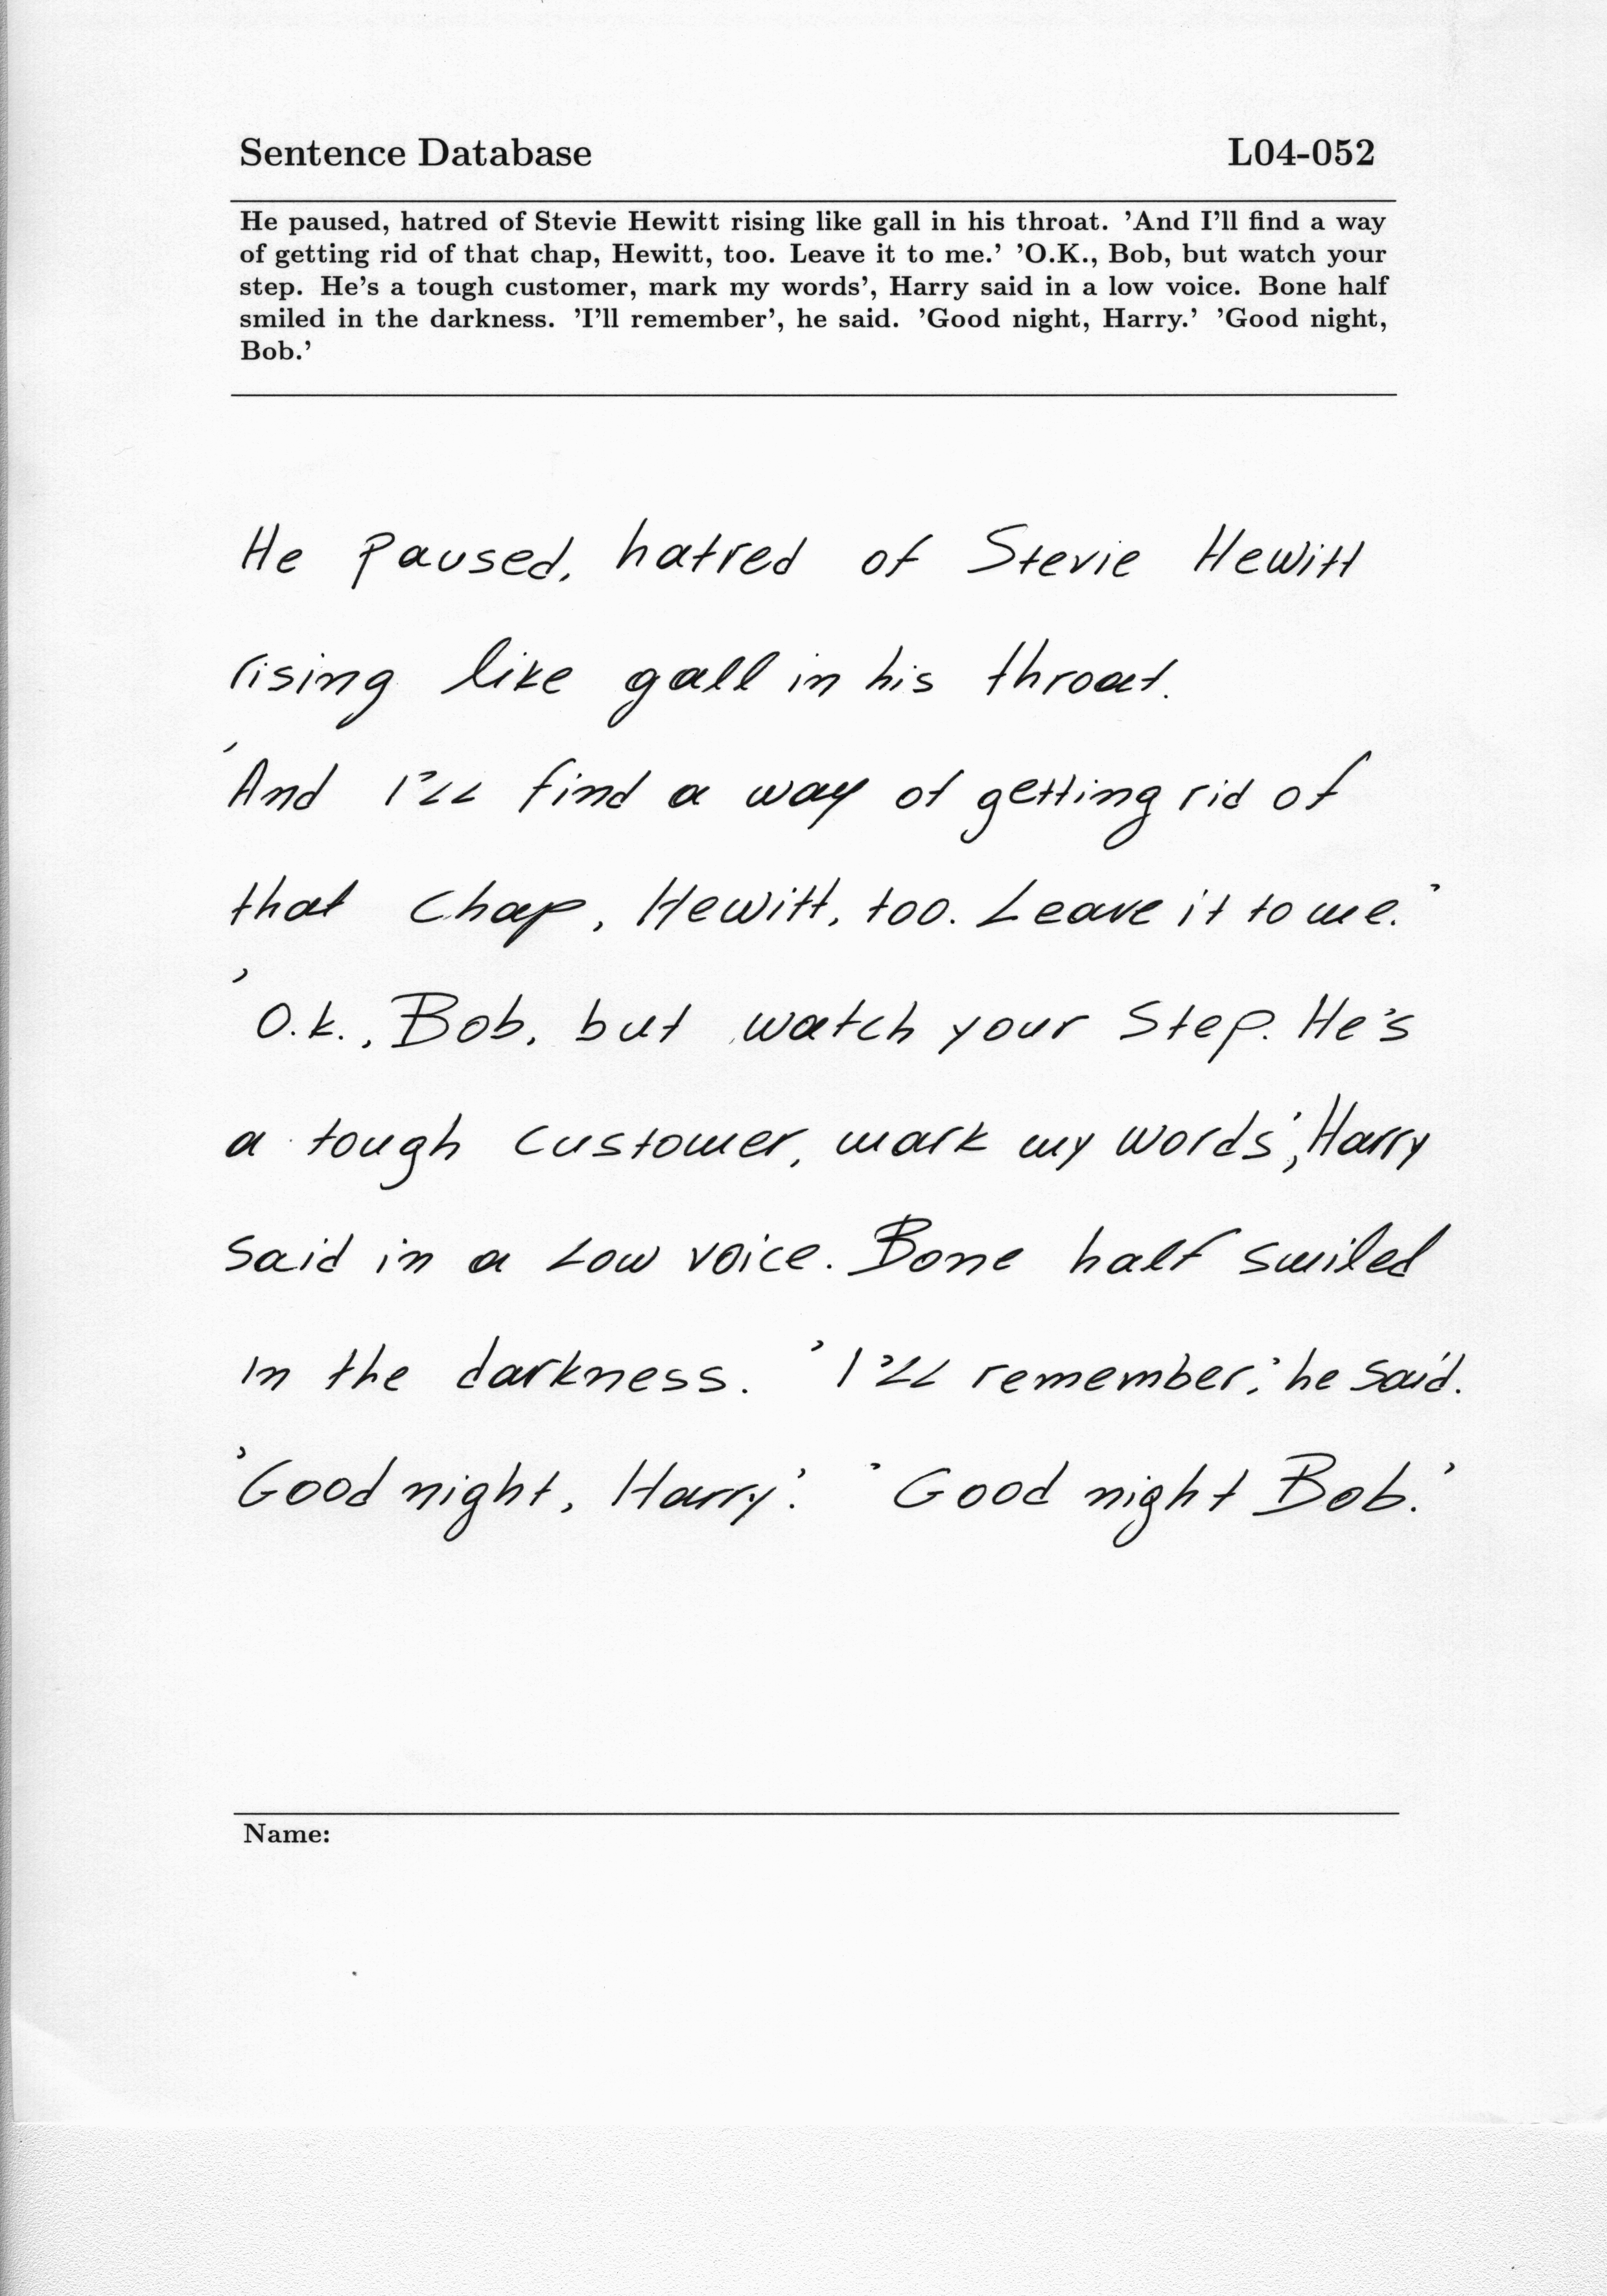 Sentence Database L04-052
He paused, hatred of Stevie Hewitt rising like gall in his throat. 'And I'll find a way
of getting rid of that chap, Hewitt, too. Leave it to me.' 'O.K., Bob, but watch your
step. He's a tough customer, mark my words', Harry said in a low voice. Bone half
smiled in the darkness. 'I'll remember', he said. 'Good night, Harry.' 'Good night,
Bob.'
He paused, hatred of Stevie Hewitt
rising like gall in his throat.
'And I'll find a way of getting rid of
that chap, Hewitt, too. Leave it to me.'
'O.k., Bob, but watch your step. He's
a tough customer, mark my words', Harry
said in a low voice. Bone half smiled
in the darkness. 'I'll remember,' he said.
'Good night, Harry.' 'Good night Bob.'
Name: